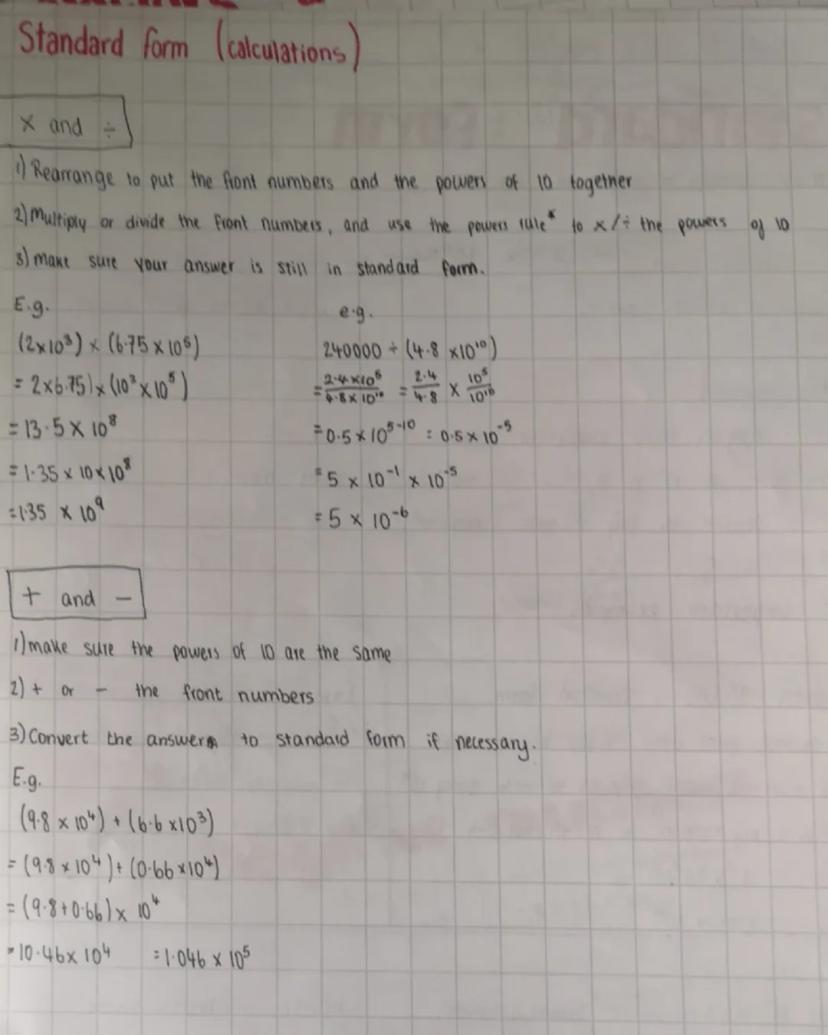 Standard form (calculations)
x and ÷
1) Rearrange to put the front numbers and the powers of 10 together
2) Multiply or divide the front numbers, and use the powers rule* to x/÷ the powers of 10
3) make sure your answer is still in standard form.
E.g.
(2x10³) x (6.75 x 10⁵)
= 2x6.75) x (10³ x 10⁵)
= 13.5 x 10⁸
= 1.35 x 10 x 10⁸
= 1.35 x 10⁹
e.g.
240000 ÷ (4.8 x10¹⁰)
= 2.4 x10⁵/4.8 x 10¹⁰ = 2.4/4.8 x 10⁵/10¹⁰
= 0.5 x 10⁵⁻¹⁰ = 0.5 x 10⁻⁵
= 5 x 10⁻¹ x 10⁻⁵
= 5 x 10⁻⁶
+ and -
1) make sure the powers of 10 are the same
2) + or - the front numbers
3) Convert the answer to standard form if necessary.
E.g.
(9.8 x 10⁴) + (6.6 x10³)
= (9.8 x 10⁴) + (0.66 x10⁴)
= (9.8+0.66) x 10⁴
= 10.46 x 10⁴ = 1.046 x 10⁵